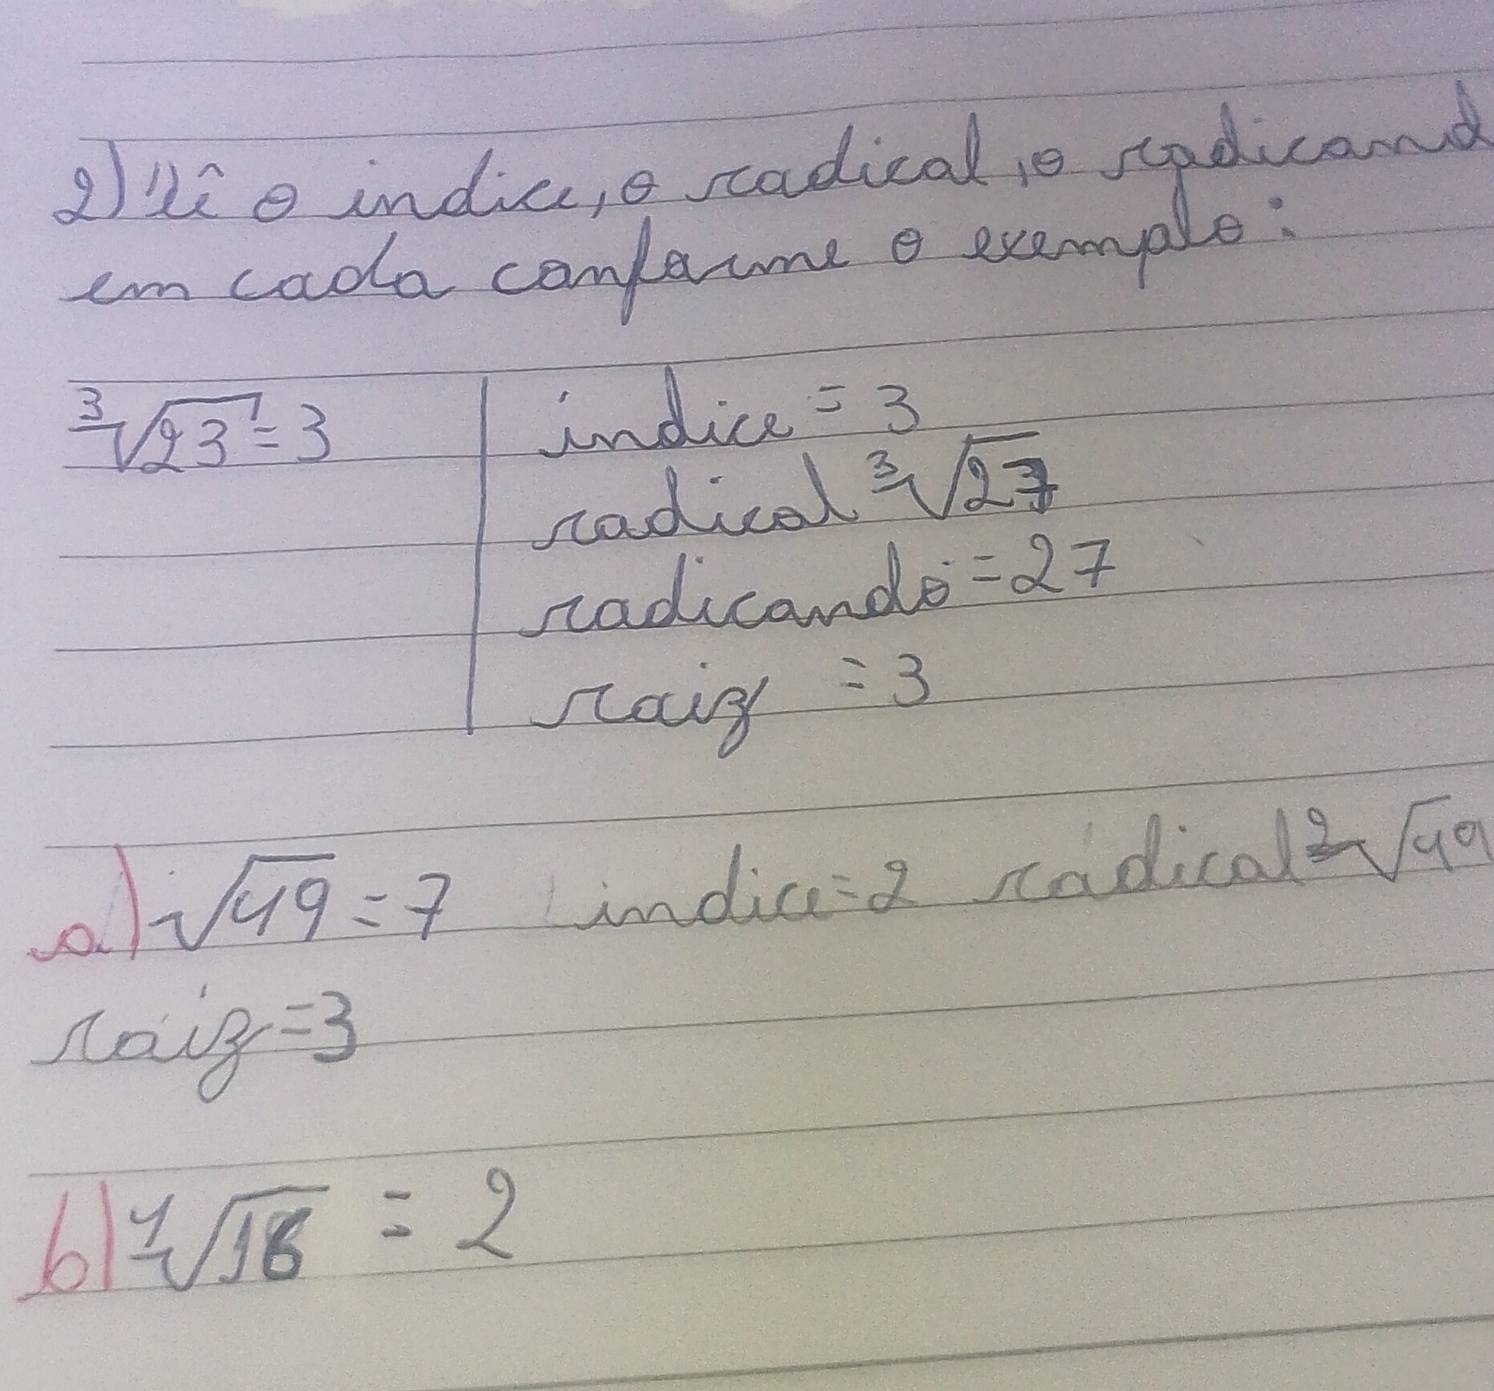 2) Dê o indice, o radical, o radicand
em cada conforme o exemplo:
³√23 = 3
indice = 3
radical ³√27
radicando = 27
raiz = 3
a) √49 = 7 indice = 2 radical ²√49
raiz = 3
b) ⁴√16 = 2